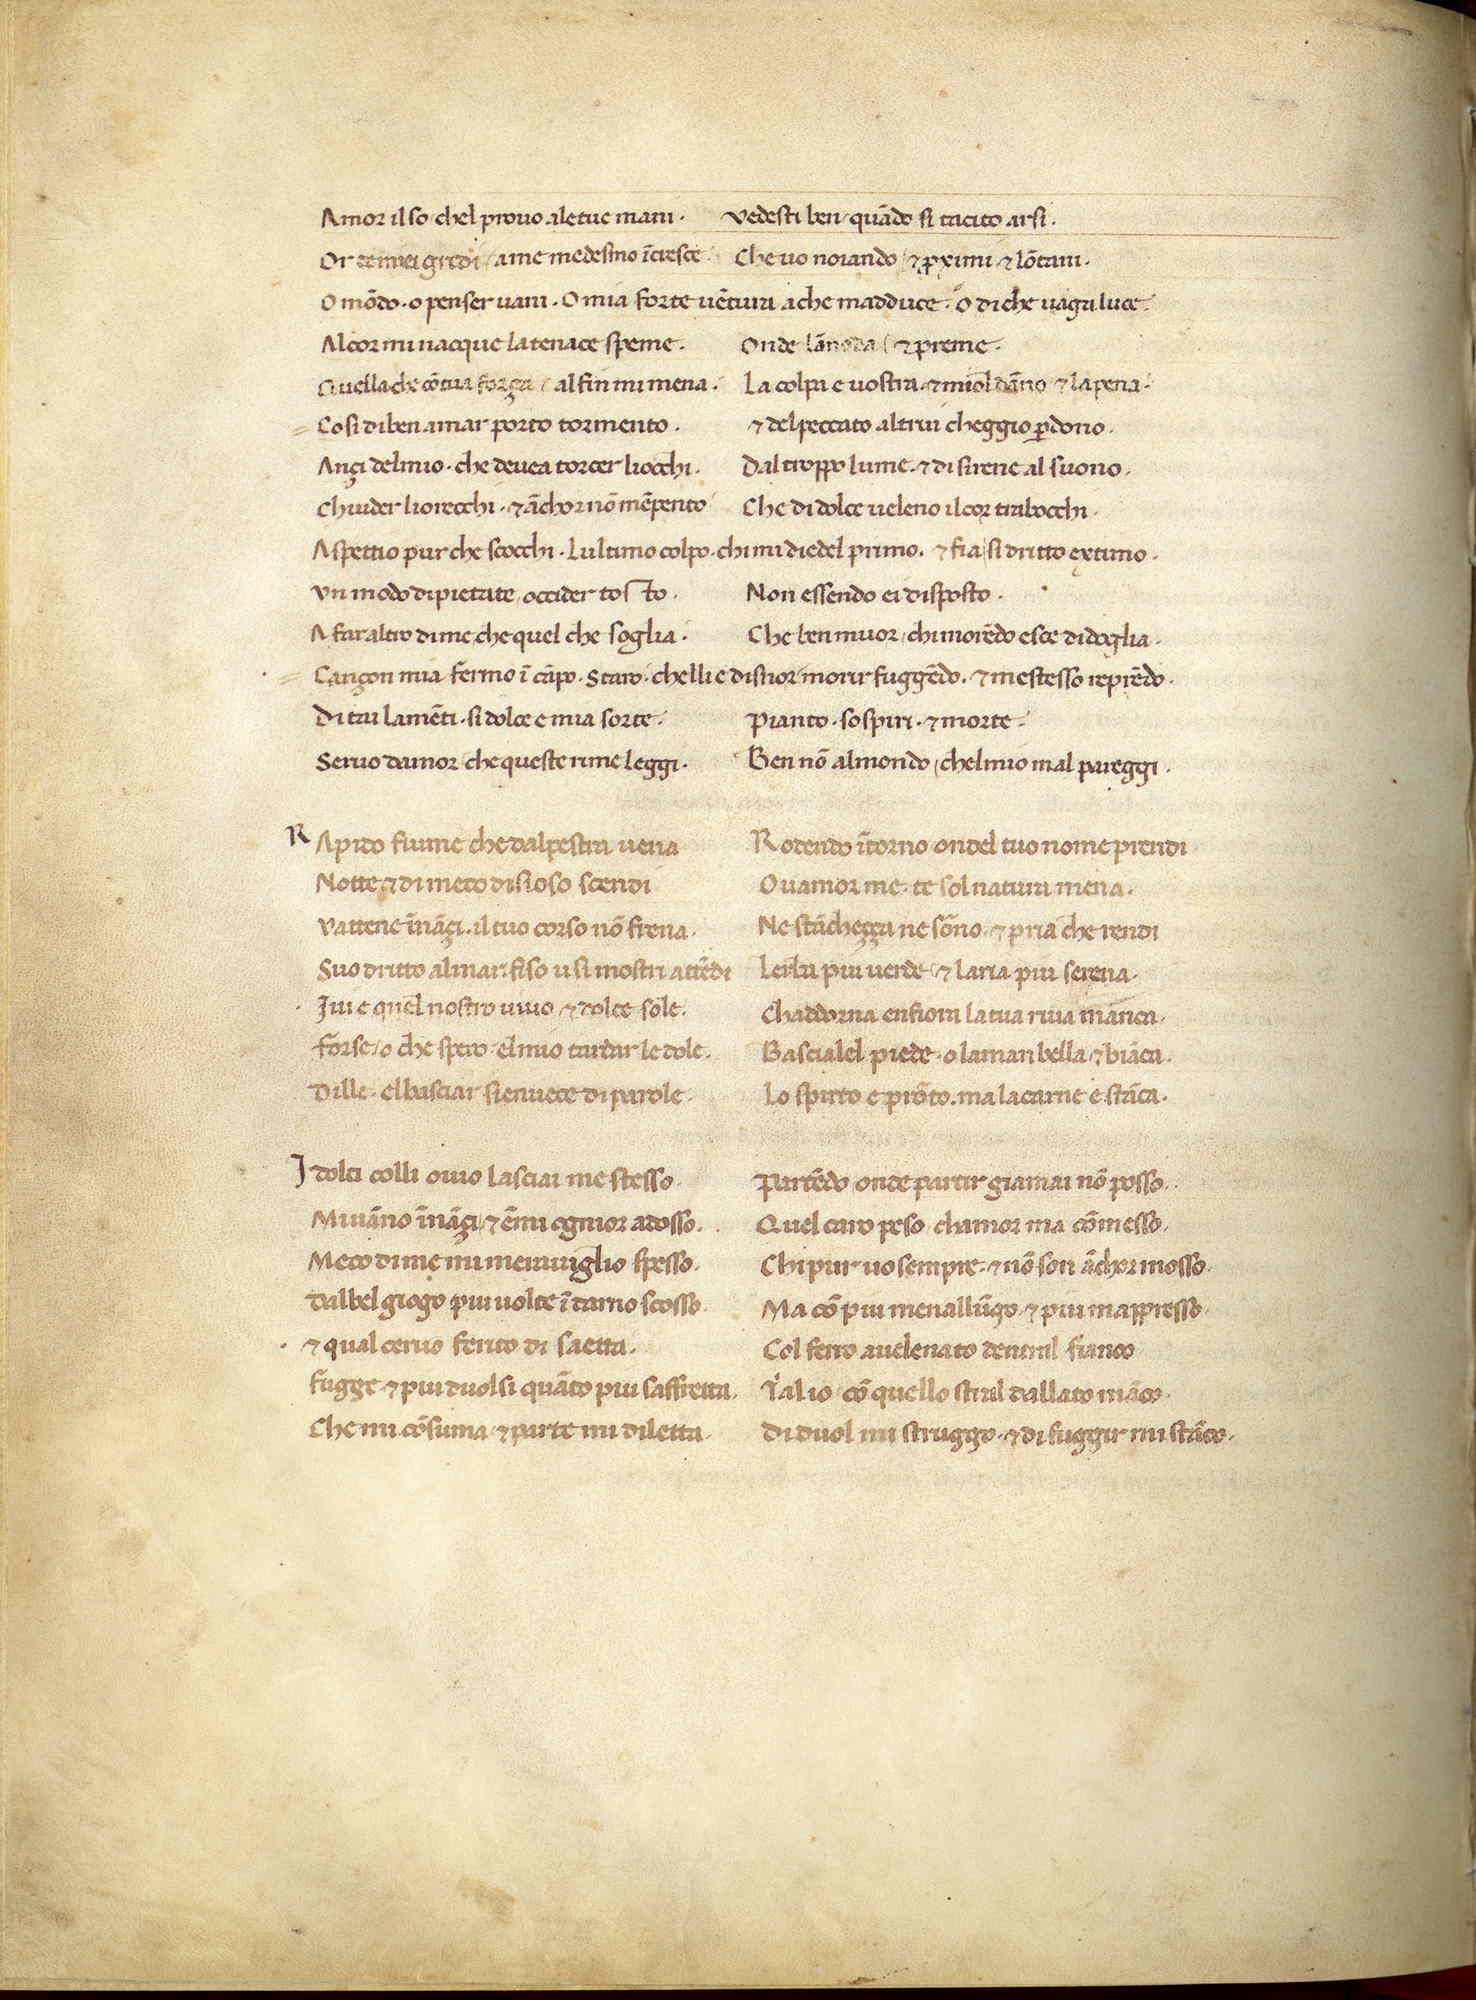 Amor il so chel provo ale tue mani. vedesti ben quãdo si tacito arsi.
Or de miei gridi ame medesmo ĩcresce. Che vo noiando ꝓximi & lõtani.
O mõdo. o penser vani. O mia forte vẽtura ache madduce. O di che vaga luce.
Al cor mi nacque la tenace speme. Onde lãnoda & preme.
Quella che cõ tua força al fin mi mena. La colpa e vostra. & miol dãno & la pena.
Cosi di ben amar porto tormento. & del peccato altrui cheggio ꝑdono.
Ançi del mio. che devea torcer li occhi. Dal troppo lume. & di sirene al suono.
Chiuder li orecchi. & ãchor nõ mẽ pento Che di dolce veleno il cor trabocchi.
Aspettio pur che scocchi. Lultimo colpo. chi mi diedel primo. & fia si dritto extimo.
Un modo di pietate occider tosto. Non essendo ei disposto.
A far altro di me che quel che soglia. Che ben muor chi morẽdo esce di doglia.
Cançon mia fermo ĩ cãpo. Staro. chelli e disnor morir fuggẽdo. & me stesso reprẽdo.
Di tai lamẽti. si dolce e mia sorte. Pianto. sospiri. & morte.
Servo damor che queste rime leggi. Ben nõ al mondo chel mio mal pareggi.
RApido fiume che dalpestra vena Rodendo ĩtorno ondel tuo nome prendi
Notte & di meco disioso scendi Ovamor me. te sol natura mena.
Vattene ĩnãçi. il tuo corso nõ frena. Ne stãcheçça ne sõno. & pria che rendi
Suo dritto al mar. fiso u si mostri attẽdi Lerba piu verde & laria piu serena.
Ivi e quel nostro vivo & dolce sole. Chaddorna enfiora la tua riva manca.
Forse o che spero. el mio tardar le dole. Basciale l piede. o la man bella & biãca.
Dille. el basciar sie nvece di parole. Lo spirto e prõto. ma la carne e stãca.
I dolci colli ovio lasciai me stesso. Partẽdo onde partir giamai nõ posso.
Mi vãno ĩnãçi & ẽmi ognior adosso. Quel caro peso chamor ma cõmesso.
Meco di me mi meraviglio spesso. Chi pur vo sempre. & nõ son ãchor mosso.
Dal bel giogo piu volte ĩdarno scosso. Ma cõ piu men allũgo. & piu mappresso.
& qual cervo ferito di saetta. Col ferro avelenato dentral fianco
Fugge. & piu duolsi quãto piu saffretta. Tal io cõ quello stral dal lato mãco.
Che mi cõsuma & parte mi diletta. Di duol mi struggo. & di fuggir mi stãco.